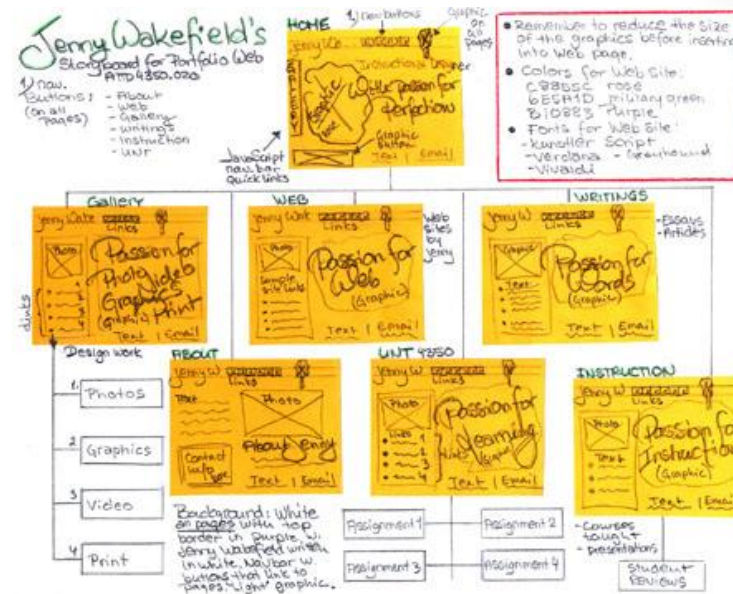 Jenny Wakefield's
Storyboard for Portfolio Web
ATTD 4350.020
1) nav.
Buttons:
(on all
pages)
- About
- Web
- Gallery
- Writings
- Instruction
- UNT
HOME
1) nav buttons
graphic
on all
pages
Jenny Wa
Instructional Designer
With Passion for
Perfection
Graphic
Graphic
button
Text | Email
JavaScript
nav. bar
quick links
• Remember to reduce the size
of the graphics before inserting
into Web page.
• Colors for Web site:
rose
military green
Purple
• Fonts for Web site:
- Kunstler Script
- Verdana - Greyhound
- Vivaldi
Gallery
Jenny Wake
Links
Photo
Passion for
Photo Video
Graphics
Print
Text | Email
Links
WEB
Jenny Wak
Links
Photo
Sample
site links
Passion for
Web
(Graphic)
Text | Email
Web
sites
by
Jenny
WRITINGS
Jenny W
Links
Graphic
Text
Passion for
Words
(Graphic)
Text | Email
- Essays
- Articles
Design work
1. Photos
2 Graphics
3 Video
4 Print
ABOUT
Jenny W
Links
Text
Photo
About Jenny
Contact
Info
Text | Email
UNT 4350
Jenny W
Links
Photo
Links 1
2
3
4
Passion for
learning
Graphic
Text | Email
INSTRUCTION
Jenny W
Links
Photo
Passion for
Instruction
(Graphic)
Text | Email
Background: White
on pages with top
border in purple. W.
Jenny Wakefield written
in white. Navbar w.
buttons that link to
pages. Light graphic.
Assignment 1
Assignment 2
Assignment 3
Assignment 4
- Courses
taught
- presentations
Student
REVIEWS